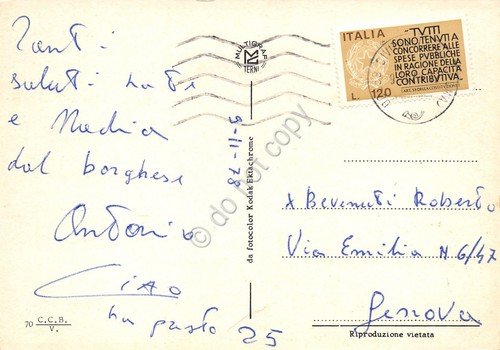 Tanti
saluti a te
e Nadia
dal borghese
Antonio
Ciao
25
9-11-78
70 C.C.B.
V.
MULTIGRAF
TERNI
da fotocolor Kodak Ektachrome
ITALIA
L. 120
TUTTI
SONO TENUTI A
CONCORRERE ALLE
SPESE PUBBLICHE
IN RAGIONE DELLA
LORO CAPACITÀ
CONTRIBUTIVA
(ART. 53 DELLA COSTITUZIONE)
x Bevenuti Roberto
Via Emilia N 6/47
Genova
Riproduzione vietata
do not copy